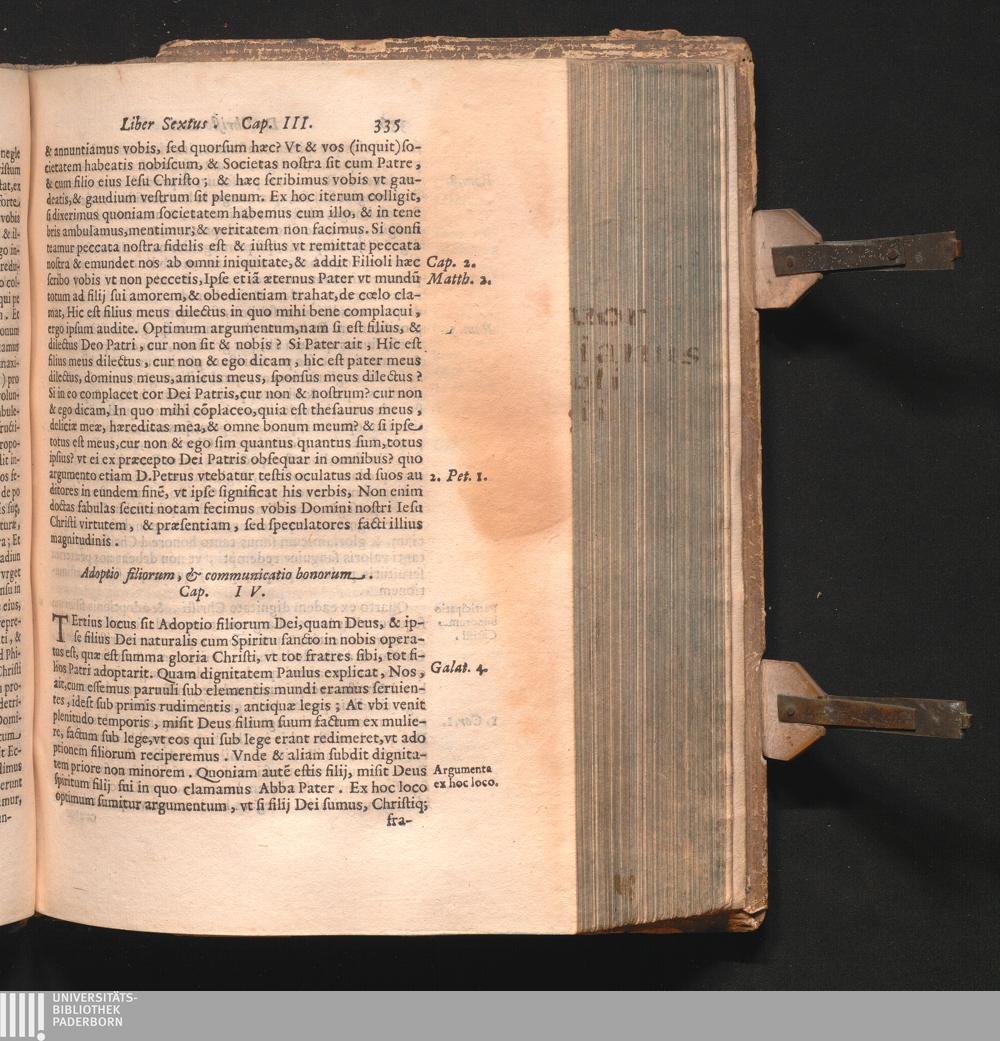 Liber Sextus. Cap. III. 335
& annuntiamus vobis, sed quorsum hæc? Vt & vos (inquit) so-
cietatem habeatis nobiscum, & Societas nostra sit cum Patre,
& cum filio eius Iesu Christo; & hæc scribimus vobis vt gau-
deatis, & gaudium vestrum sit plenum. Ex hoc iterum colligit,
si dixerimus quoniam societatem habemus cum illo, & in tene
bris ambulamus, mentimur; & veritatem non facimus. Si confi
teamur peccata nostra fidelis est & iustus vt remittat peccata
nostra & emundet nos ab omni iniquitate, & addit Filioli hæc
Cap. 2.
scribo vobis vt non peccetis, Ipse etiã æternus Pater vt mundũ
Matth. 2.
totum ad filij sui amorem, & obedientiam trahat, de cœlo cla-
mat, Hic est filius meus dilectus in quo mihi bene complacui,
ergo ipsum audite. Optimum argumentum, nam si est filius, &
dilectus Deo Patri, cur non sit & nobis? Si Pater ait, Hic est
filius meus dilectus, cur non & ego dicam, hic est pater meus
dilectus, dominus meus, amicus meus, sponsus meus dilectus?
Si in eo complacet cor Dei Patris, cur non & nostrum? cur non
& ego dicam, In quo mihi cõplaceo, quia est thesaurus meus,
deliciæ meæ, hæreditas mea, & omne bonum meum? & si ipse
totus est meus, cur non & ego sim quantus quantus sum, totus
ipsius? vt ei ex præcepto Dei Patris obsequar in omnibus? quo
argumento etiam D. Petrus vtebatur testis oculatus ad suos au
2. Pet. 1.
ditores in eundem finẽ, vt ipse significat his verbis, Non enim
doctas fabulas secuti notam fecimus vobis Domini nostri Iesu
Christi virtutem, & præsentiam, sed speculatores facti illius
magnitudinis.
Adoptio filiorum, & communicatio bonorum.
Cap. IV.
TErtius locus sit Adoptio filiorum Dei, quam Deus, & ip-
se filius Dei naturalis cum Spiritu sancto in nobis opera-
tus est, quæ est summa gloria Christi, vt tot fratres sibi, tot fi-
lios Patri adoptarit. Quam dignitatem Paulus explicat, Nos,
Galat. 4.
ait, cum essemus paruuli sub elementis mundi eramus seruien-
tes, idest sub primis rudimentis, antiquæ legis; At vbi venit
plenitudo temporis, misit Deus filium suum factum ex mulie-
re, factum sub lege, vt eos qui sub lege erant redimeret, vt ado
ptionem filiorum reciperemus. Vnde & aliam subdit dignita-
tem priore non minorem. Quoniam autẽ estis filij, misit Deus
Argumenta
spiritum filij sui in quo clamamus Abba Pater. Ex hoc loco
ex hoc loco.
optimum sumitur argumentum, vt si filij Dei sumus, Christiq;
fra-
UNIVERSITÄTS-
BIBLIOTHEK
PADERBORN